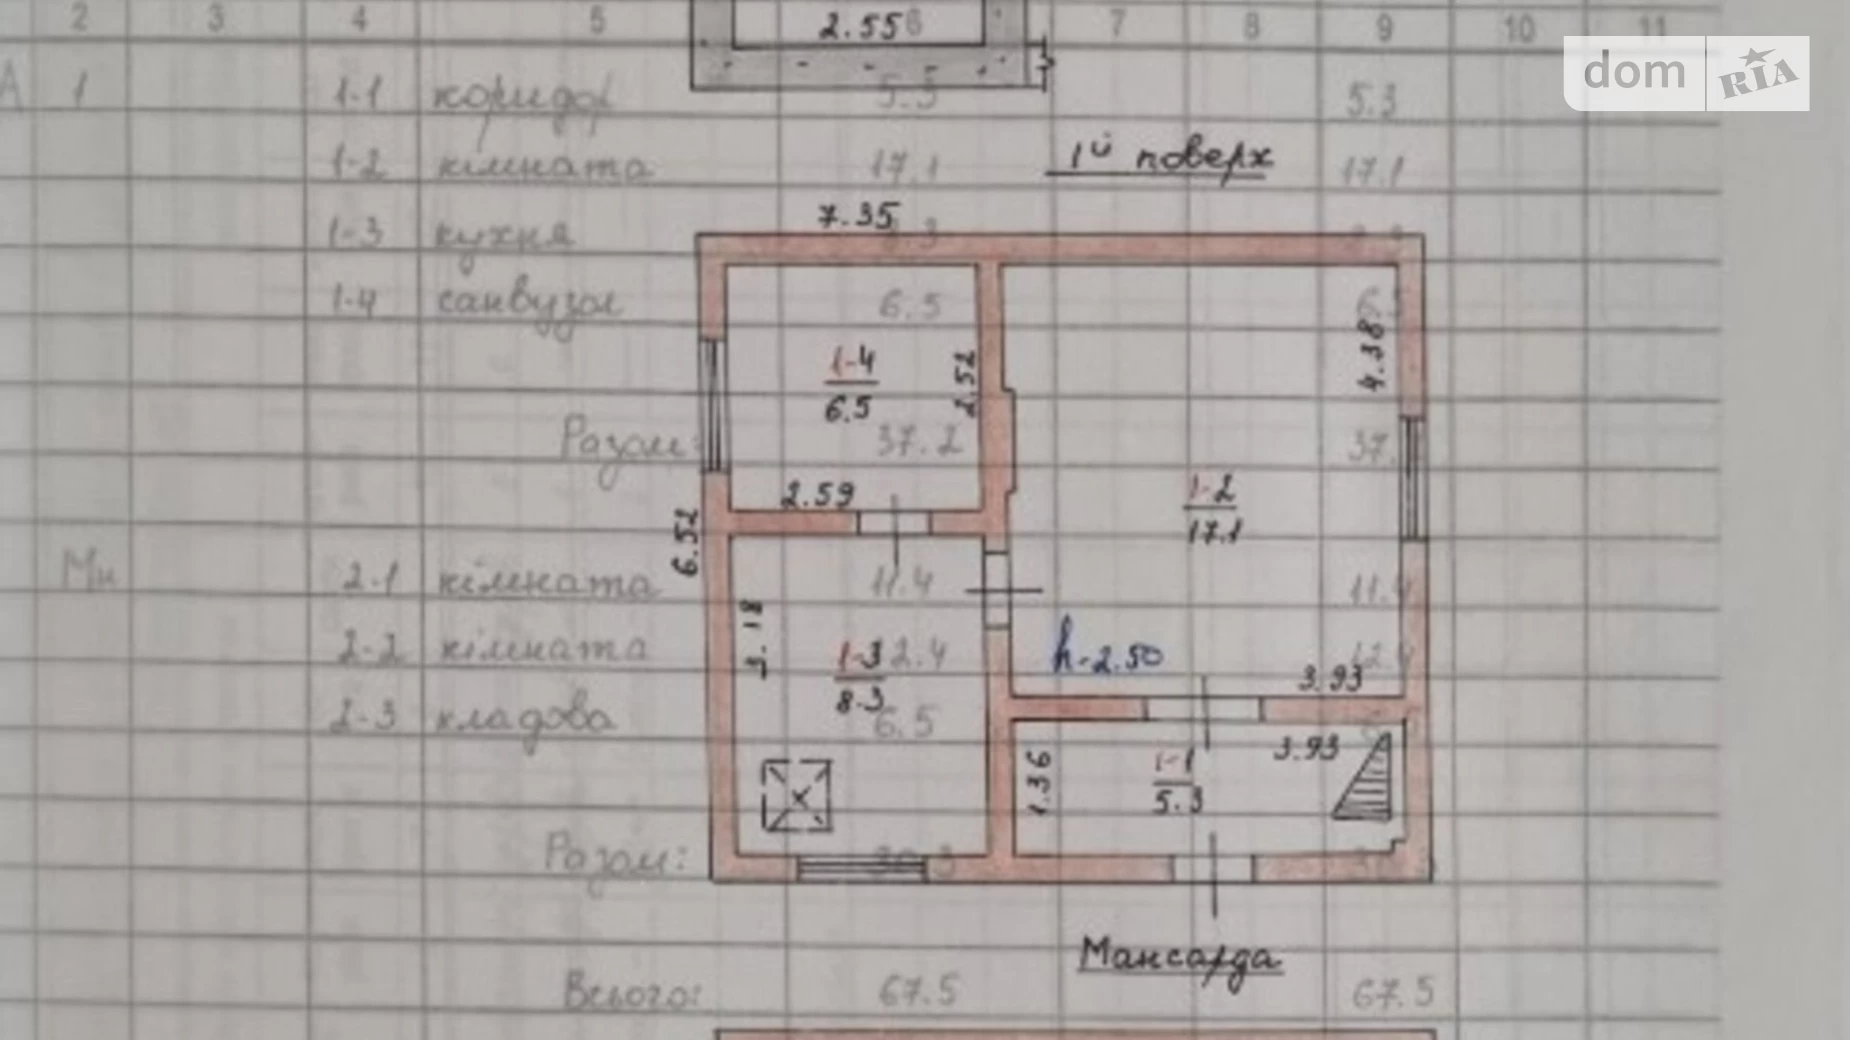 2 3 4 5 6 7 8 9 10 11
2.55
dom RIA
А 1 1-1 коридор 5.3 5.3
1-2 кімната 17.1 17.1
1й поверх
7.35
1-3 кухня 8.3
1-4 санвузол 6.5
4.38
1-4
6.5
2.52
Разом: 37.2 37.
2.59
1-2
17.1
6.52
Мн 2-1 кімната 11.4 11.4
3.18
2-2 кімната 12.4 12.4
1-3
8.3
h-2.50
3.93
2-3 кладова 6.5
3.93
1.36
1-1
5.3
Разом:
Мансарда
Всього: 67.5 67.5